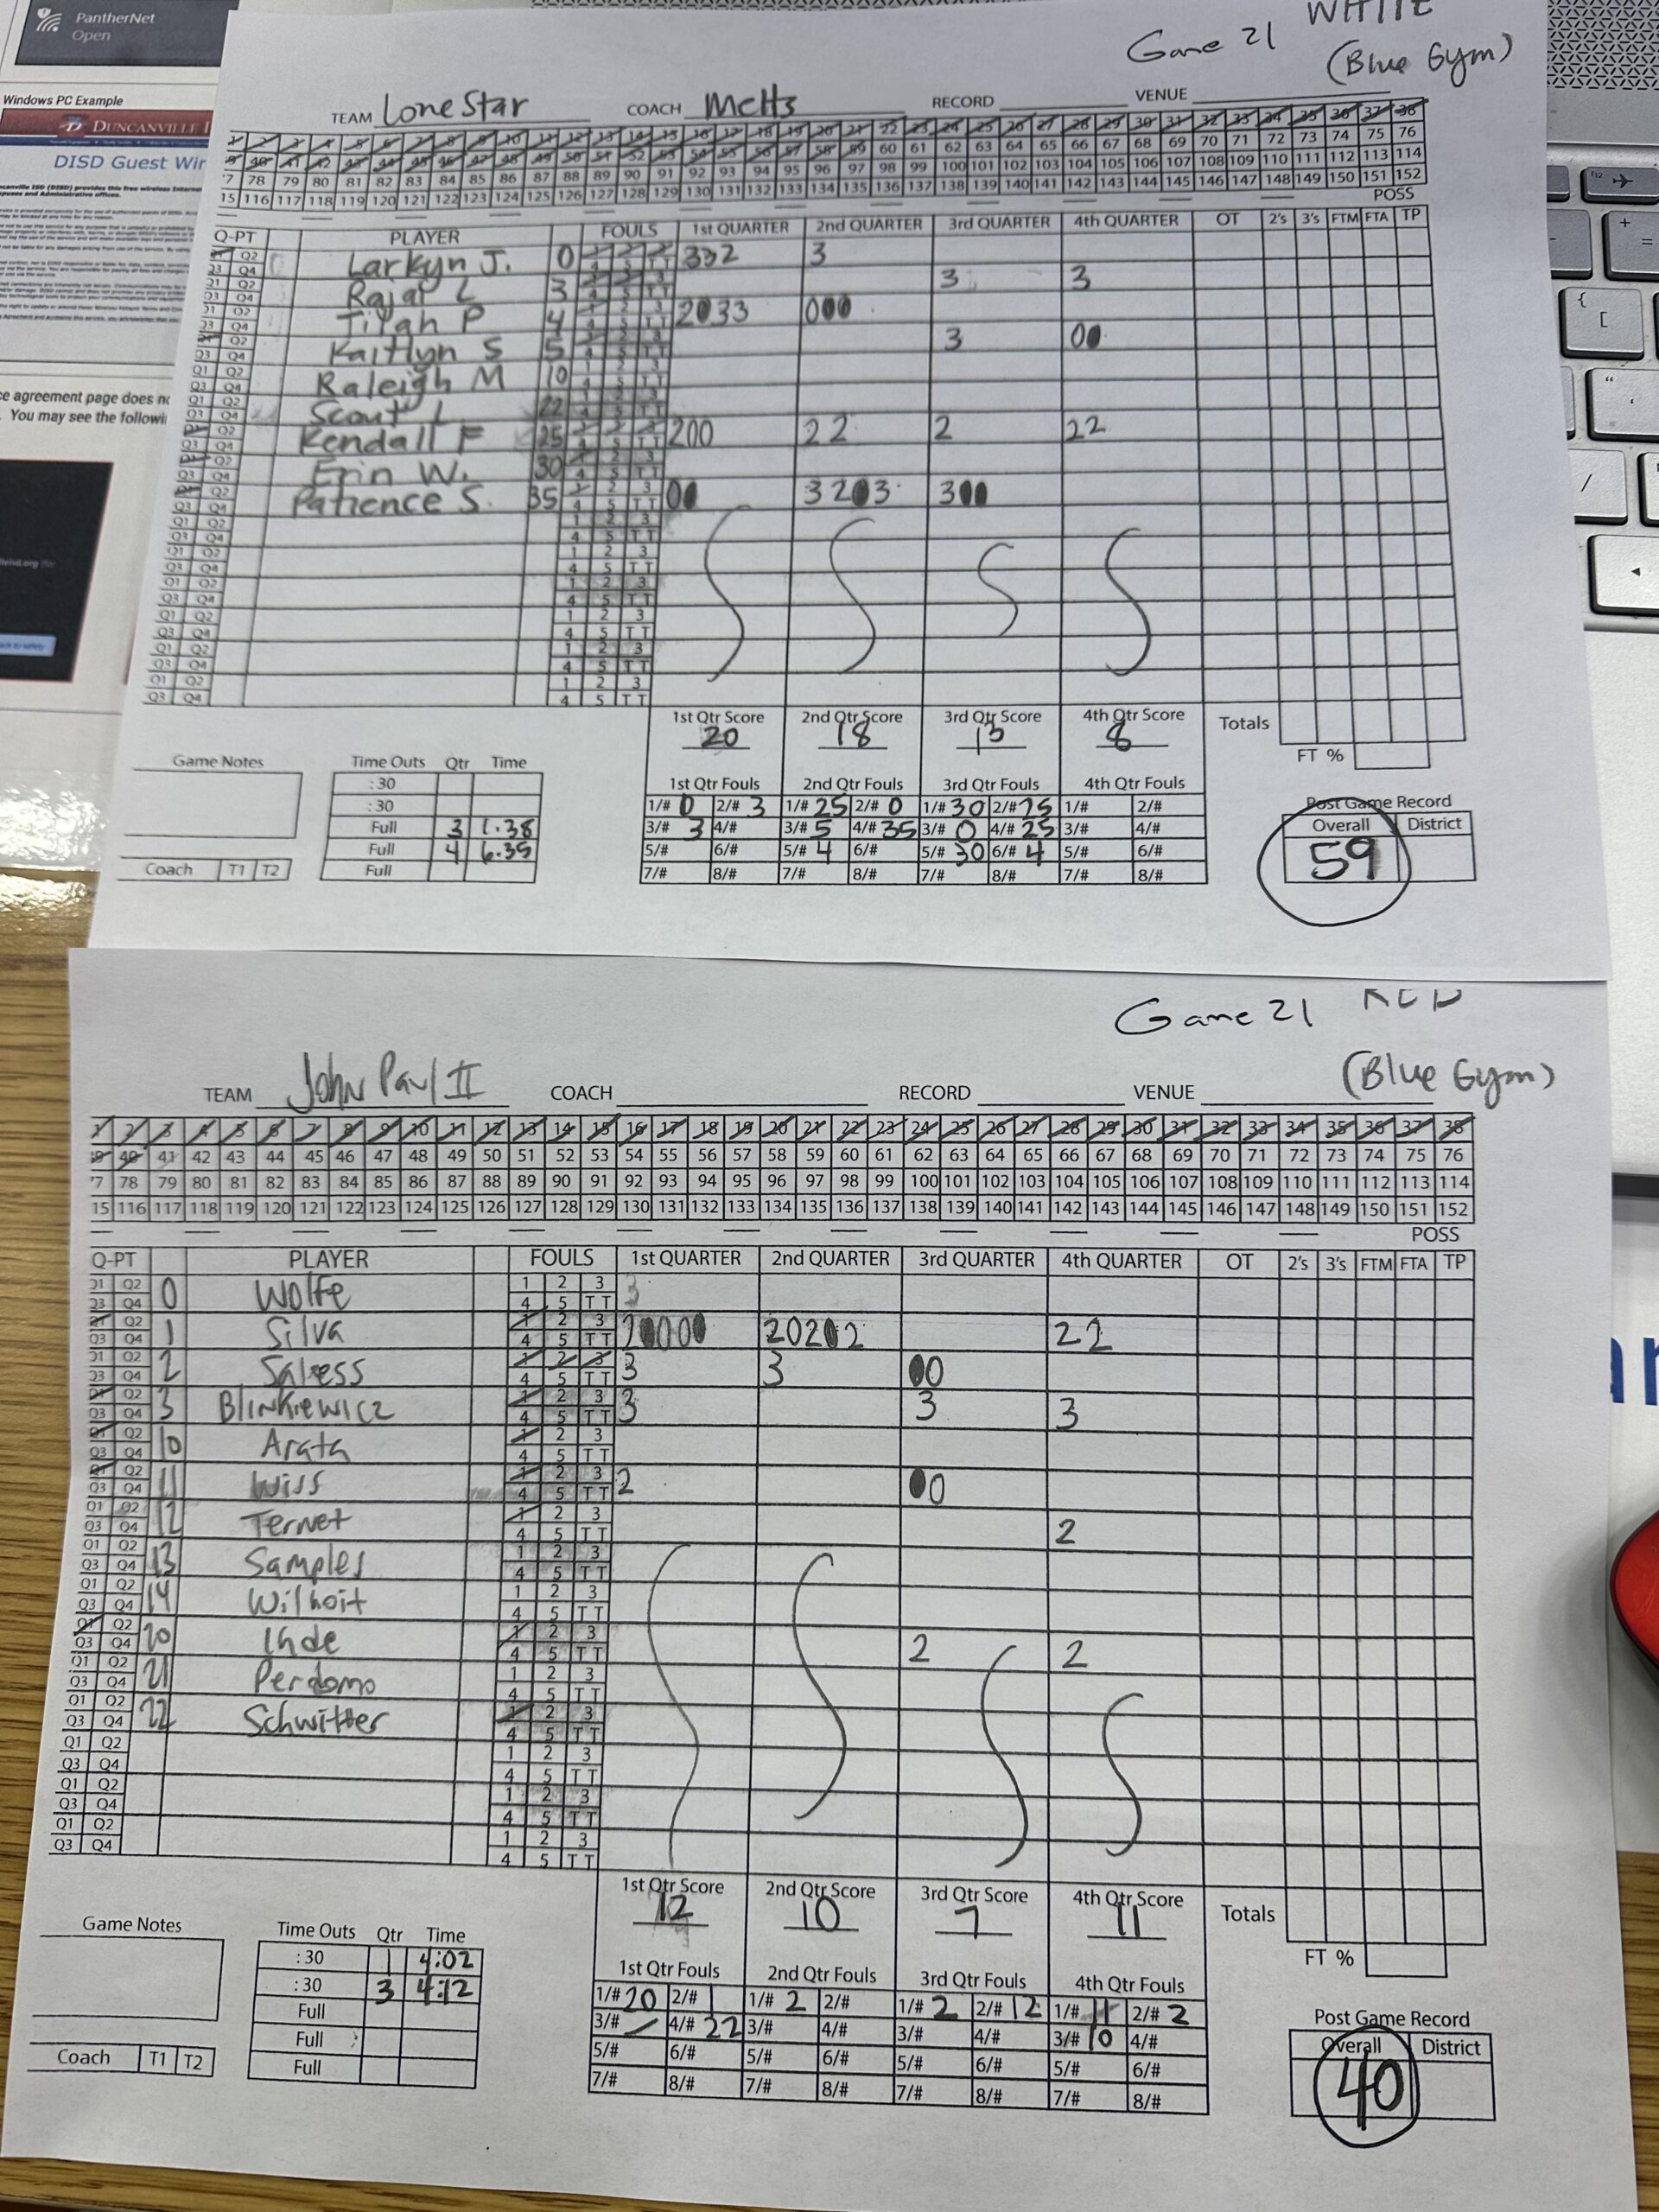 PantherNet
Open
Windows PC Example
DUNCANVILLE I
DISD Guest Wir
ce agreement page does no
. You may see the followi
Game 21 WHITE
(Blue Gym)
TEAM Lone Star COACH Melts RECORD VENUE
1 2 3 4 5 6 7 8 9 10 11 12 13 14 15 16 17 18 19 20 21 22 23 24 25 26 27 28 29 30 31 32 33 34 35 36 37 38
9 40 41 42 43 44 45 46 47 48 49 50 51 52 53 54 55 56 57 58 59 60 61 62 63 64 65 66 67 68 69 70 71 72 73 74 75 76
7 78 79 80 81 82 83 84 85 86 87 88 89 90 91 92 93 94 95 96 97 98 99 100 101 102 103 104 105 106 107 108 109 110 111 112 113 114
15 116 117 118 119 120 121 122 123 124 125 126 127 128 129 130 131 132 133 134 135 136 137 138 139 140 141 142 143 144 145 146 147 148 149 150 151 152
POSS
Q-PT PLAYER FOULS 1st QUARTER 2nd QUARTER 3rd QUARTER 4th QUARTER OT 2's 3's FTM FTA TP
Larkyn J. 0 332 3
Rajai L 3 3 3
Jilah P 4 2033 000
Kaitlyn S 5 3 00
Raleigh M 10
Scout L 22
Kendall F 25 200 22 2 22
Erin W. 30
Patience S. 35 00 3203 300
1st Qtr Score 2nd Qtr Score 3rd Qtr Score 4th Qtr Score Totals
20 18 13 8
FT %
Game Notes Time Outs Qtr Time
:30
:30
Full 3 1.38
Full 4 6.35
Full
Coach T1 T2
1st Qtr Fouls 2nd Qtr Fouls 3rd Qtr Fouls 4th Qtr Fouls
1/# 0 2/# 3 1/# 25 2/# 0 1/# 30 2/# 25 1/# 2/#
3/# 3 4/# 3/# 5 4/# 35 3/# 0 4/# 25 3/# 4/#
5/# 6/# 5/# 4 6/# 5/# 30 6/# 4 5/# 6/#
7/# 8/# 7/# 8/# 7/# 8/# 7/# 8/#
Post Game Record
Overall District
59
Game 21 RED
(Blue Gym)
TEAM John Paul II COACH RECORD VENUE
1 2 3 4 5 6 7 8 9 10 11 12 13 14 15 16 17 18 19 20 21 22 23 24 25 26 27 28 29 30 31 32 33 34 35 36 37 38
9 40 41 42 43 44 45 46 47 48 49 50 51 52 53 54 55 56 57 58 59 60 61 62 63 64 65 66 67 68 69 70 71 72 73 74 75 76
7 78 79 80 81 82 83 84 85 86 87 88 89 90 91 92 93 94 95 96 97 98 99 100 101 102 103 104 105 106 107 108 109 110 111 112 113 114
15 116 117 118 119 120 121 122 123 124 125 126 127 128 129 130 131 132 133 134 135 136 137 138 139 140 141 142 143 144 145 146 147 148 149 150 151 152
POSS
Q-PT PLAYER FOULS 1st QUARTER 2nd QUARTER 3rd QUARTER 4th QUARTER OT 2's 3's FTM FTA TP
0 Wolfe
1 Silva 20000 20202 22
2 Saless 3 3 00
3 Blinkiewicz 3 3 3
10 Arata
11 Wiss 2 00
12 Ternet 2
13 Samples
14 Wilhoit
20 Ihde 2 2
21 Perdomo
22 Schwitter
1st Qtr Score 2nd Qtr Score 3rd Qtr Score 4th Qtr Score Totals
12 10 7 11
FT %
Game Notes Time Outs Qtr Time
:30 1 4:02
:30 3 4:12
Full
Full
Full
Coach T1 T2
1st Qtr Fouls 2nd Qtr Fouls 3rd Qtr Fouls 4th Qtr Fouls
1/# 20 2/# 1 1/# 2 2/# 1/# 2 2/# 12 1/# 11 2/# 2
3/# 4/# 22 3/# 4/# 3/# 4/# 3/# 10 4/#
5/# 6/# 5/# 6/# 5/# 6/# 5/# 6/#
7/# 8/# 7/# 8/# 7/# 8/# 7/# 8/#
Post Game Record
Overall District
40